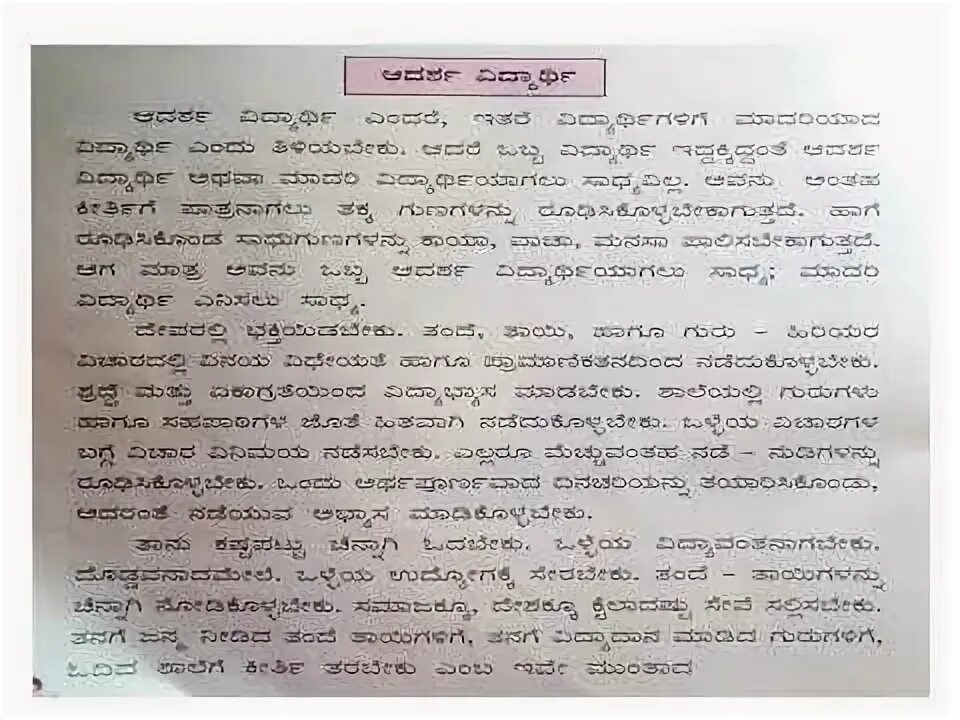 ಆದರ್ಶ ವಿದ್ಯಾರ್ಥಿ
ಆದರ್ಶ ವಿದ್ಯಾರ್ಥಿ ಎಂದರೆ, ಇತರೆ ವಿದ್ಯಾರ್ಥಿಗಳಿಗೆ ಮಾದರಿಯಾದ
ವಿದ್ಯಾರ್ಥಿ ಎಂದು ತಿಳಿಯಬೇಕು. ಆದರೆ ಒಬ್ಬ ವಿದ್ಯಾರ್ಥಿ ಇದ್ದಕ್ಕಿದ್ದಂತೆ ಆದರ್ಶ
ವಿದ್ಯಾರ್ಥಿ ಅಥವಾ ಮಾದರಿ ವಿದ್ಯಾರ್ಥಿಯಾಗಲು ಸಾಧ್ಯವಿಲ್ಲ. ಅವನು ಅಂತಹ
ಕೀರ್ತಿಗೆ ಪಾತ್ರನಾಗಲು ತಕ್ಕ ಗುಣಗಳನ್ನು ರೂಢಿಸಿಕೊಳ್ಳಬೇಕಾಗುತ್ತದೆ. ಹಾಗೆ
ರೂಢಿಸಿಕೊಂಡ ಸಾಧುಗುಣಗಳನ್ನು ಕಾಯಾ, ವಾಚಾ, ಮನಸಾ ಪಾಲಿಸಬೇಕಾಗುತ್ತದೆ.
ಆಗ ಮಾತ್ರ ಅವನು ಒಬ್ಬ ಆದರ್ಶ ವಿದ್ಯಾರ್ಥಿಯಾಗಲು ಸಾಧ್ಯ; ಮಾದರಿ
ವಿದ್ಯಾರ್ಥಿ ಎನಿಸಲು ಸಾಧ್ಯ.
ದೇವರಲ್ಲಿ ಭಕ್ತಿಯಿಡಬೇಕು. ತಂದೆ, ತಾಯಿ, ಹಾಗೂ ಗುರು – ಹಿರಿಯರ
ವಿಚಾರದಲ್ಲಿ ವಿನಯ ವಿಧೇಯತೆ ಹಾಗೂ ಪ್ರಾಮಾಣಿಕತನದಿಂದ ನಡೆದುಕೊಳ್ಳಬೇಕು.
ಶ್ರದ್ಧೆ ಮತ್ತು ಏಕಾಗ್ರತೆಯಿಂದ ವಿದ್ಯಾಭ್ಯಾಸ ಮಾಡಬೇಕು. ಶಾಲೆಯಲ್ಲಿ ಗುರುಗಳು
ಹಾಗೂ ಸಹಪಾಠಿಗಳ ಜೊತೆ ಹಿತವಾಗಿ ನಡೆದುಕೊಳ್ಳಬೇಕು. ಒಳ್ಳೆಯ ವಿಚಾರಗಳ
ಬಗ್ಗೆ ವಿಚಾರ ವಿನಿಮಯ ನಡೆಸಬೇಕು. ಎಲ್ಲರೂ ಮೆಚ್ಚುವಂತಹ ನಡೆ – ನುಡಿಗಳನ್ನು
ರೂಢಿಸಿಕೊಳ್ಳಬೇಕು. ಒಂದು ಅರ್ಥಪೂರ್ಣವಾದ ದಿನಚರಿಯನ್ನು ತಯಾರಿಸಿಕೊಂಡು,
ಅದರಂತೆ ನಡೆಯುವ ಅಭ್ಯಾಸ ಮಾಡಿಕೊಳ್ಳಬೇಕು.
ತಾನು ಕಷ್ಟಪಟ್ಟು ಚೆನ್ನಾಗಿ ಓದಬೇಕು. ಒಳ್ಳೆಯ ವಿದ್ಯಾವಂತನಾಗಬೇಕು.
ದೊಡ್ಡವನಾದಮೇಲೆ. ಒಳ್ಳೆಯ ಉದ್ಯೋಗಕ್ಕೆ ಸೇರಬೇಕು. ತಂದೆ – ತಾಯಿಗಳನ್ನು
ಚೆನ್ನಾಗಿ ನೋಡಿಕೊಳ್ಳಬೇಕು. ಸಮಾಜಕ್ಕೂ, ದೇಶಕ್ಕೂ ಕೈಲಾದಷ್ಟು ಸೇವೆ ಸಲ್ಲಿಸಬೇಕು.
ತನಗೆ ಜನ್ಮ ನೀಡಿದ ತಂದೆ ತಾಯಿಗಳಿಗೆ, ತನಗೆ ವಿದ್ಯಾದಾನ ಮಾಡಿದ ಗುರುಗಳಿಗೆ,
ಓದಿದ ಶಾಲೆಗೆ ಕೀರ್ತಿ ತರಬೇಕು ಎಂಬ ಇವೇ ಮುಂತಾದ